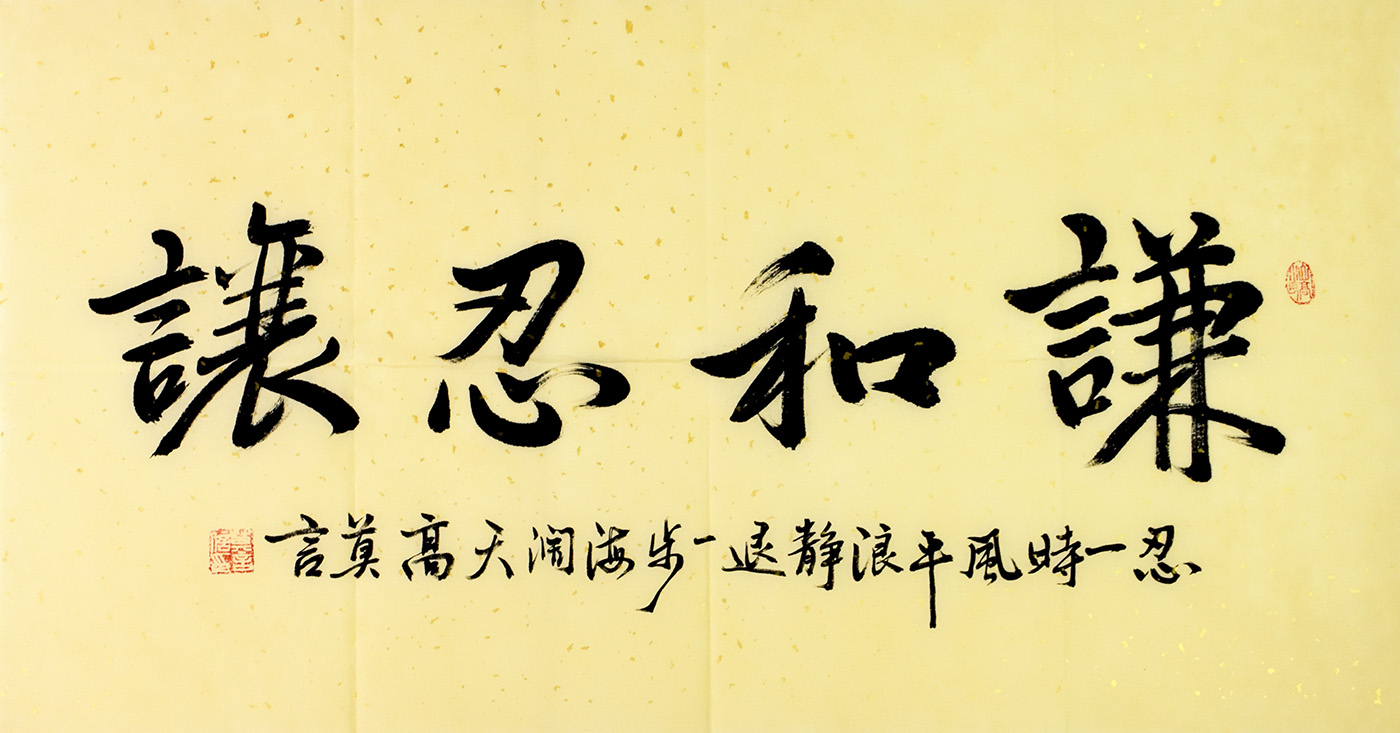 謙和忍讓
忍一時風平浪靜退一步海闊天高莫言